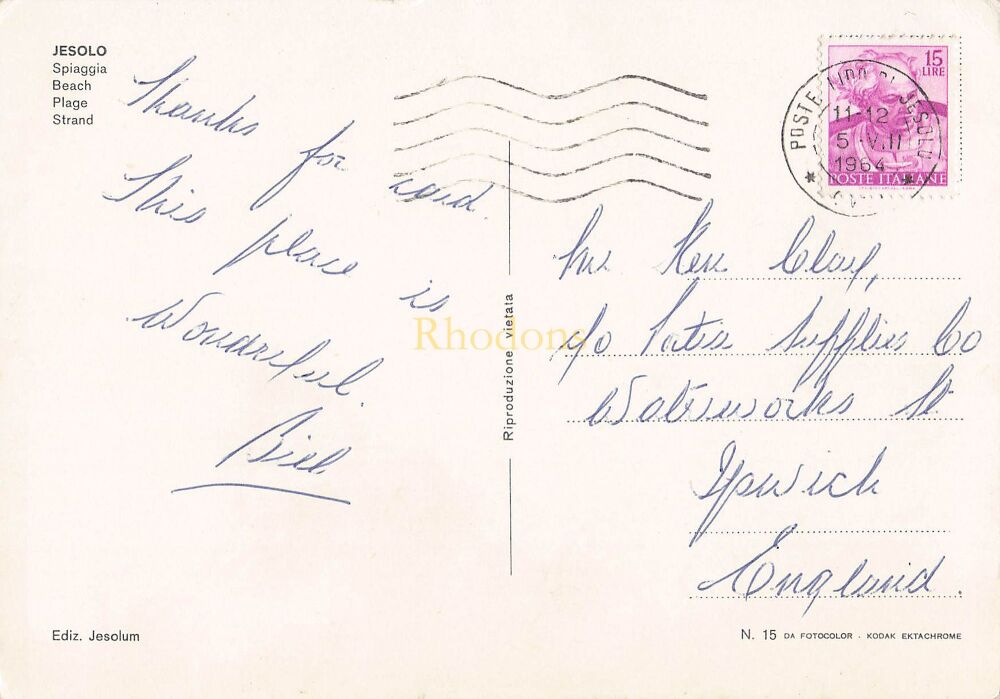 JESOLO
Spiaggia
Beach
Plage
Strand
Thanks
for card.
This place is
Wonderful.
Bill
Riproduzione vietata
Rhodons
15
LIRE
POSTE ITALIANE
POSTE LIDO DI JESOLO
11-12
5 V.II
1964
Mr Ken Clay,
c/o Pates Supplies Co
Waterworks St
Ipswich
England.
Ediz. Jesolum
N. 15 DA FOTOCOLOR - KODAK EKTACHROME